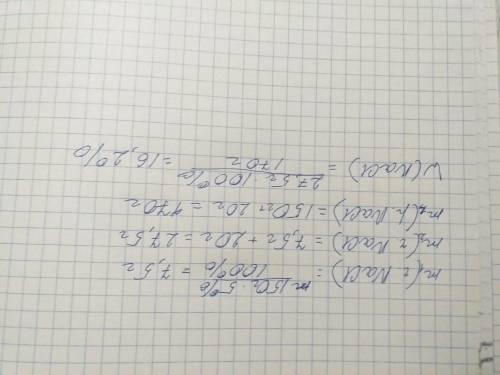 m₁(г NaCl) = 150г · 5% / 100% = 7,5г
m₂(г NaCl) = 7,5г + 20г = 27,5г
m₂(р. NaCl) = 150г + 20г = 170г
W(NaCl) = 27,5г · 100% / 170г = 16,2%